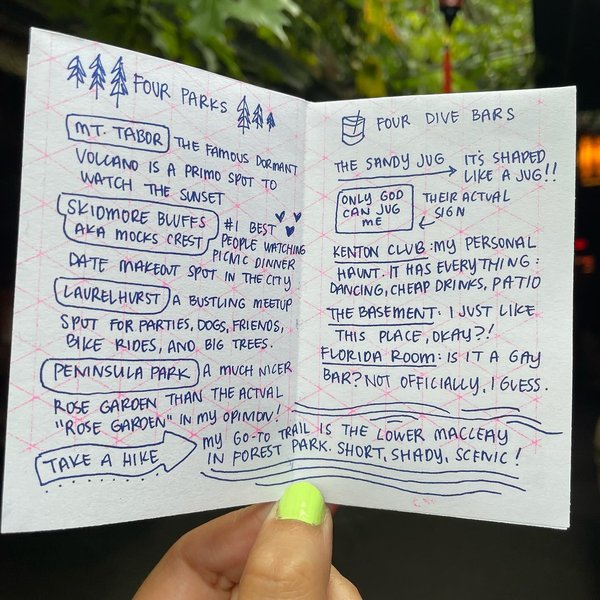 FOUR PARKS
MT. TABOR THE FAMOUS DORMANT
VOLCANO IS A PRIMO SPOT TO
WATCH THE SUNSET
SKIDMORE BLUFFS
AKA MOCKS CREST
#1 BEST
PEOPLE WATCHING
PICNIC DINNER
DATE MAKEOUT SPOT IN THE CITY
LAURELHURST A BUSTLING MEETUP
SPOT FOR PARTIES, DOGS, FRIENDS,
BIKE RIDES, AND BIG TREES.
PENINSULA PARK A MUCH NICER
ROSE GARDEN THAN THE ACTUAL
"ROSE GARDEN" IN MY OPINION!
FOUR DIVE BARS
THE SANDY JUG IT'S SHAPED
LIKE A JUG!!
ONLY GOD
CAN JUG
ME
THEIR ACTUAL
SIGN
KENTON CLUB: MY PERSONAL
HAUNT. IT HAS EVERYTHING:
DANCING, CHEAP DRINKS, PATIO
THE BASEMENT: I JUST LIKE
THIS PLACE, OKAY?!
FLORIDA ROOM: IS IT A GAY
BAR? NOT OFFICIALLY, I GUESS.
TAKE A HIKE
MY GO-TO TRAIL IS THE LOWER MACLEAY
IN FOREST PARK. SHORT, SHADY, SCENIC!